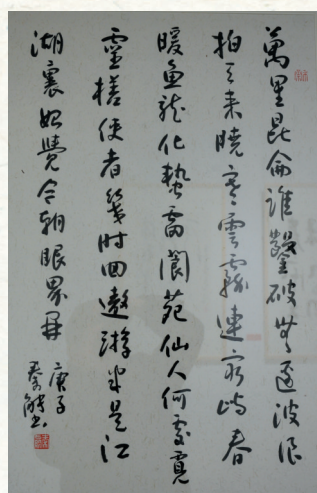 萬里昆侖誰鑿破無邊波浪
拍天来曉寒雲霧連窮嶼春
暖魚龍化蟄雷閬苑仙人何處覓
靈槎使者幾時回遨游半是江
湖裏始覺今朝眼界開
庚子